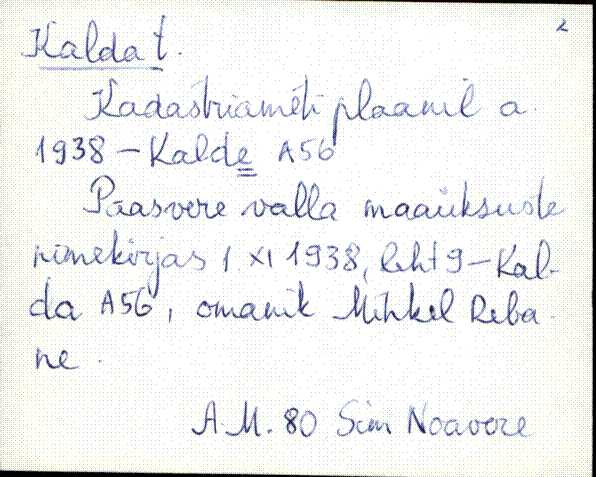 2
Kalda t.
Kadastriameti plaanil a.
1938 – Kalde A56
Paasvere valla maaüksuste
nimekirjas 1 XI 1938, leht 9 – Kal-
da A56, omanik Mihkel Reba-
ne.
A.M. 80 Sim Noavere